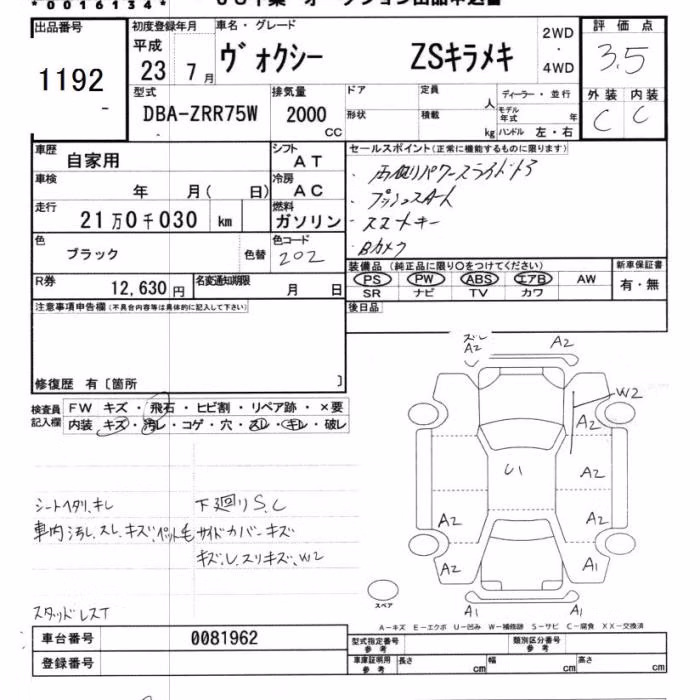 *0016134*
出品番号
1192
初度登録年月
平成
23 7月
車名・グレード
ヴォクシー ZSキラメキ
2WD
・
4WD
評価点
3.5
外装 内装
C C
型式
DBA-ZRR75W
排気量
2000
CC
ドア
定員
人
ディーラー・並行
形状
積載
kg
モデル年式 年
ハンドル 左・右
車歴
自家用
シフト
AT
車検
年 月( 日)
冷房
AC
走行
21万0千030 km
燃料
ガソリン
色
ブラック
色替
色コード
202
R券
12,630 円
名変通知期限
月 日
セールスポイント(正常に機能するものに限ります)
・両側パワースライドドア
・プッシュスタート
・スマートキー
・Bカメラ
装備品 (純正品に限り○をつけてください)
PS PW ABS エアB AW
SR ナビ TV カワ
新車保証書
有・無
後日品
注意事項申告欄(不具合内容等は具体的に記入して下さい)
修復歴 有〔箇所 〕
検査員
記入欄
FW キズ・飛石・ヒビ割・リペア跡・×要
内装 キズ・汚レ・コゲ・穴・スレ・キレ・破レ
シートヘタリ、キレ
下廻りS、C
車内汚レ、スレ、キズ、ペット毛
サイドカバーキズ
キズ、レ、スリキズ、W2
スタッドレスT
ズレ
A2
A2
W2
A2
U1
A2
A2
A2
A2
A1
A1
A1
スペア
A-キズ E-エクボ U-凹み W-補修跡 S-サビ C-腐食 XX-交換済
車台番号
0081962
登録番号
型式指定番号
参考
類別区分番号
参考
車庫証明用
参考
長さ cm
幅 cm
高さ cm